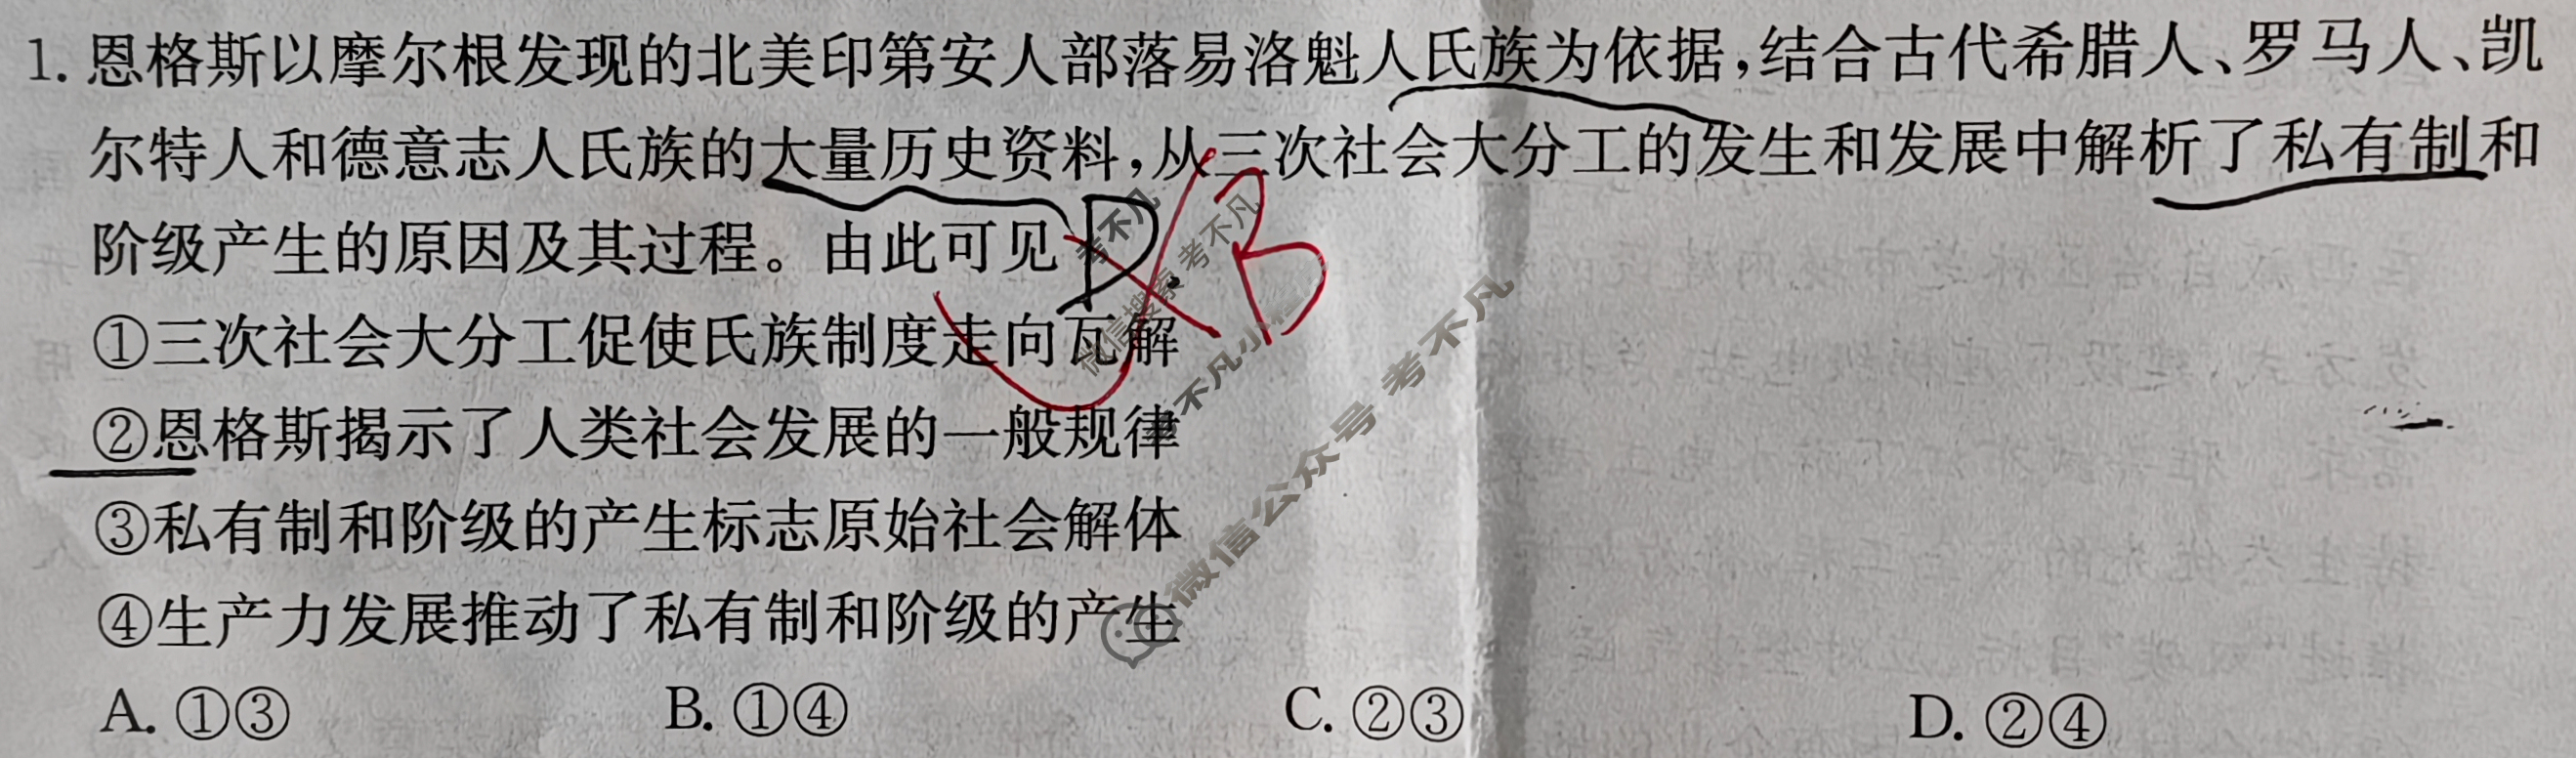 1. 恩格斯以摩尔根发现的北美印第安人部落易洛魁人氏族为依据,结合古代希腊人、罗马人、凯
尔特人和德意志人氏族的大量历史资料,从三次社会大分工的发生和发展中解析了私有制和
阶级产生的原因及其过程。由此可见 D B
①三次社会大分工促使氏族制度走向瓦解
②恩格斯揭示了人类社会发展的一般规律
③私有制和阶级的产生标志原始社会解体
④生产力发展推动了私有制和阶级的产生
A. ①③ B. ①④ C. ②③ D. ②④
考不凡
微信搜索 考不凡
考不凡小
微信公众号 考不凡